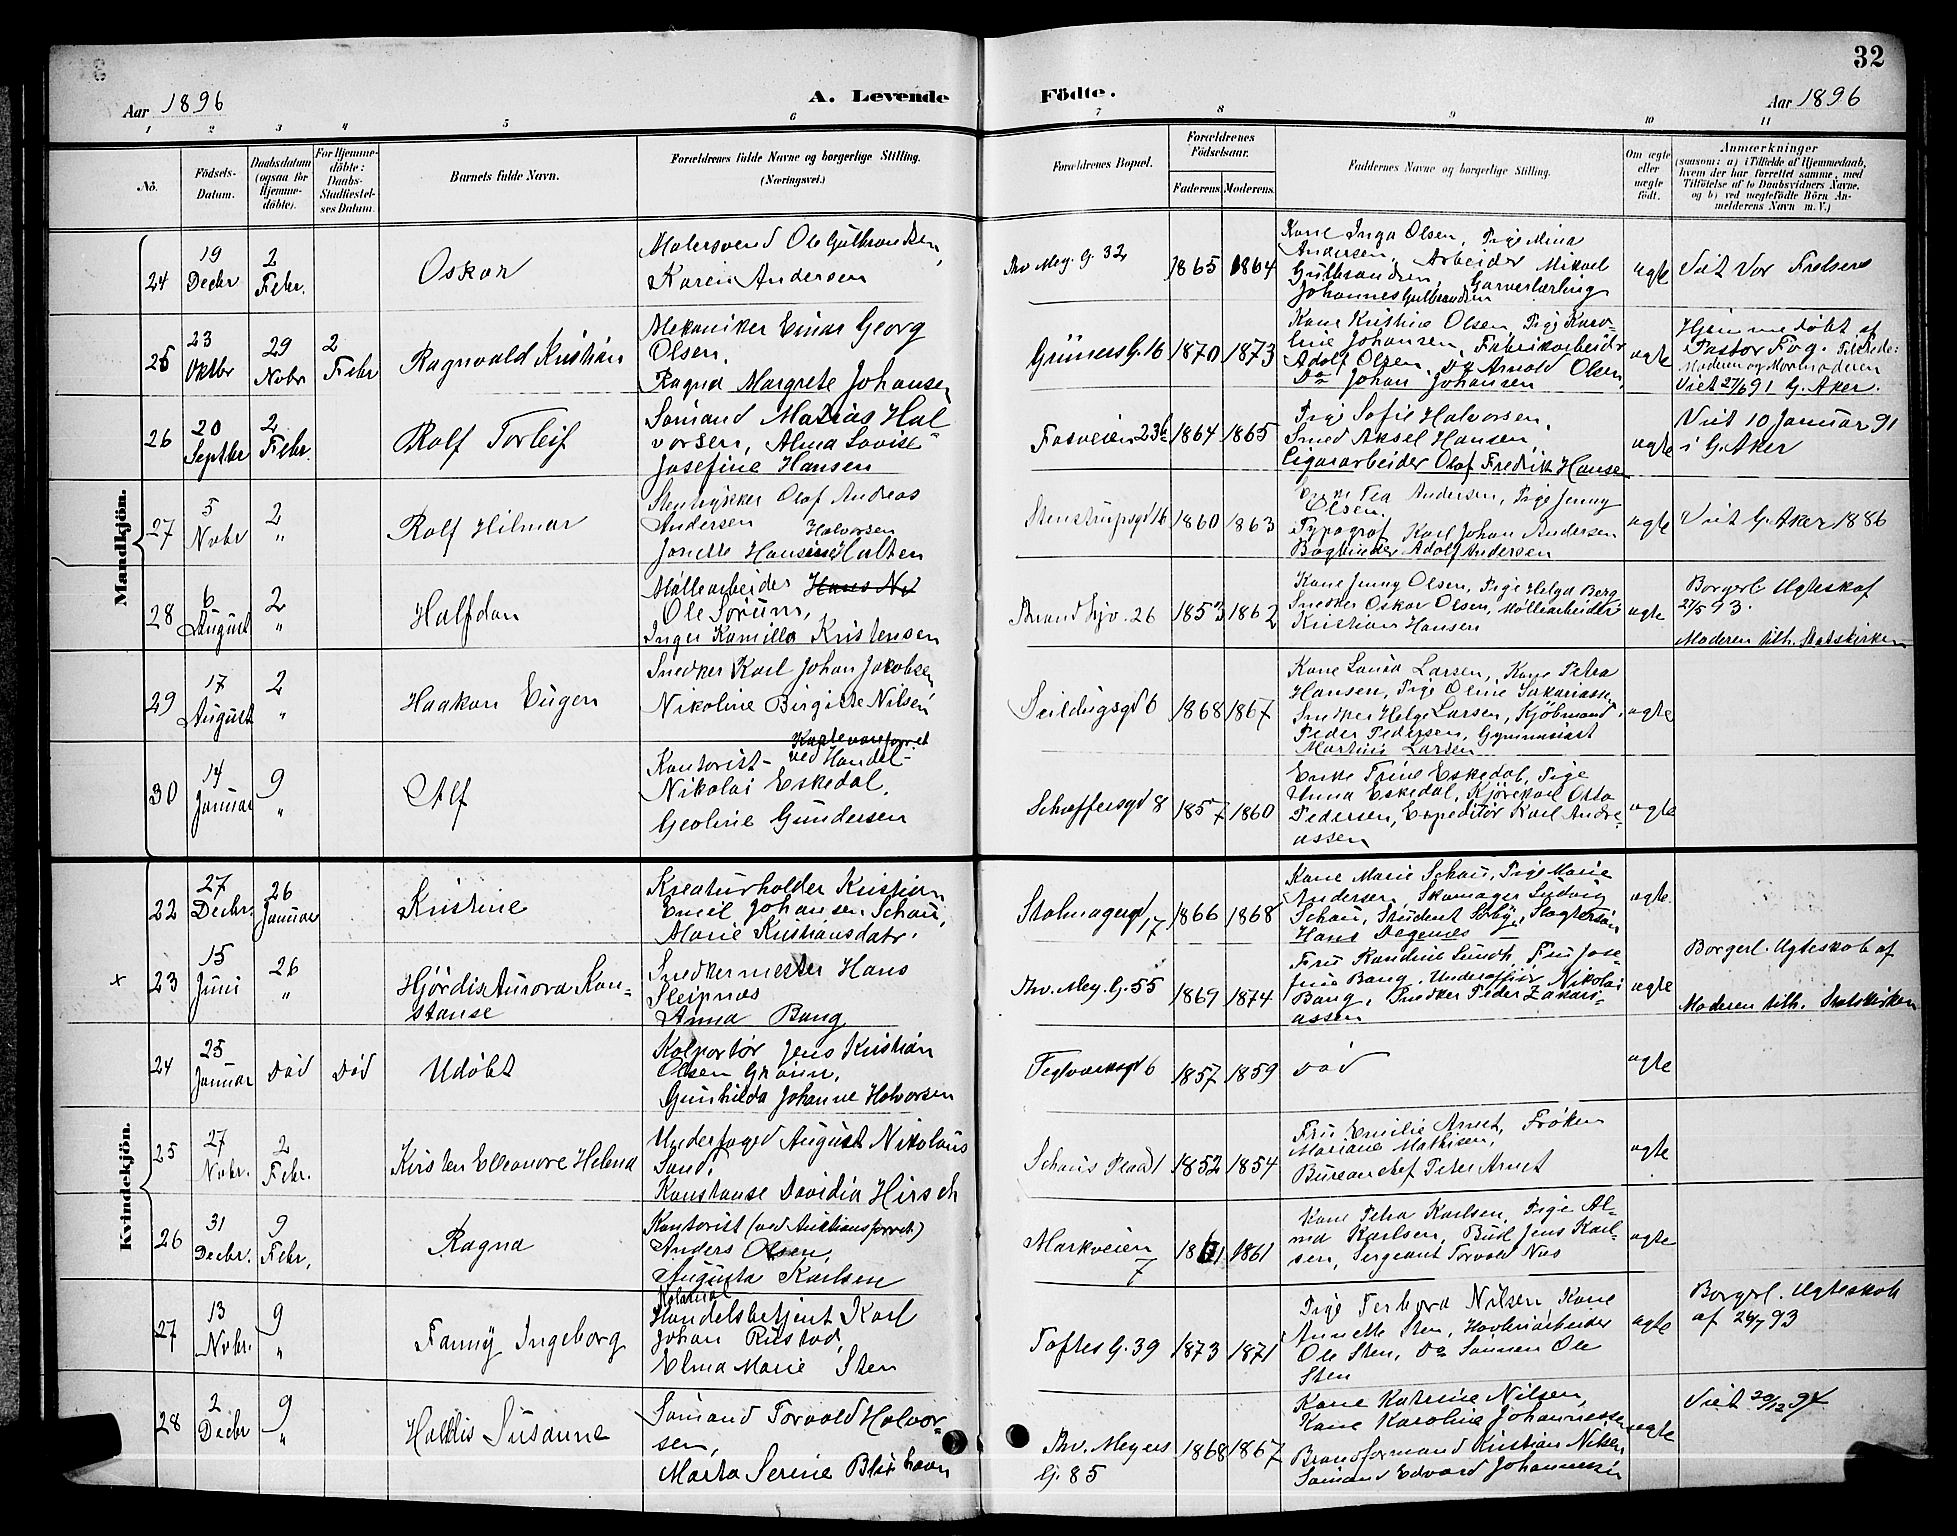 32
Aar 1896
A. Levende
Födte.
Aar 1896
1 2 3 4 5 6 7 8 9 10 11
No.
Födsels-
Datum.
Daabsdatum
(ogsaa for
Hjemme-
döbte).
For Hjemme-
döbte:
Daabs-
Stadfæstel-
ses Datum.
Barnets fulde Navn.
Forældrenes fulde Navne og borgerlige Stilling.
(Næringsvei.)
Forældrenes Bopæl.
Forældrenes
Födselsaar.
Faderens.
Moderens.
Faddernes Navne og borgerlige Stilling.
Om ægte
eller
uægte
født.
Anmærkninger
(saasom: a) i Tilfælde af Hjemmedaab,
hvem der har forrettet samme, med
Tilföielse af to Daabsvidners Navne,
og b) ved uægtefödte Börn An-
melderens Navn m. V.)
Mandkjön.
24
19
Decbr
2
Febr.
Oskar
Malersvend Ole Gulbrandsen,
Karen Andersen
Thv. Mey. G. 32
1865
1864
Kone Inga Olsen, Pige Mina
Andersen, Arbeider Mikael
Gulbrandsen, Garverlærling
Johannes Gulbrandsen
ægte
Viet Vor Frelsers
25
23
Oktbr
29
Nobr
2
Febr
Ragnvald Kristian
Mekaniker Einar Georg
Olsen,
Ragna Margrete Johansen
Grüners G. 16
1870
1873
Kone Kristine Olsen, Pige Karo-
line Johansen, Fabrikarbeider
Adolf Olsen, Do Arnold Olsen,
Do Johan Johansen
ægte
Hjemmedøbt af
Pastor Fog. Tilstede:
Moderen og Mormoderen
Viet 27/6 91 G. Aker.
26
20
Septbr
2
Febr.
Rolf Torleif
Sømand Matias Hal
vorsen, Alma Lovise
Josefine Hansen
Fosveien 23b
1864
1865
Pige Sofie Halvorsen,
Smed Aksel Hansen,
Cigararbeider Olaf Fredrik Hansen
ægte
Viet 10 Januar 91
i G. Aker
27
5
Nobr
2
"
Rolf Hilmar
Stentrykker Olaf Andreas
Andersen
Halvorsen
Jonette Hansine Holten
Stenstrupsgd 16
1860
1863
Enke Tea Andersen, Pige Jenny
Olsen,
Typograf Karl Johan Andersen
Bogbinder Adolf Andersen
ægte
Viet G. Aker 1886
28
6
August
2
"
Halfdan
Møllearbeider Hans Ni
Ole Sørum,
Inger Kamilla Kristensen
26
1853
1862
Kone Jenny Olsen, Pige Helga Berg
Snedker Oskar Olsen, Møllearbeider
Kristian Hansen
ægte
Borgerl. Ægteskab
27/5 93.
Moderen tilh. Statskirken
29
17
August
2
"
Haakon Eugen
Snedker Karl Johan Jakobsen
Nikoline Birgitte Nilsen
Seildugsgd 6
1868
1867
Kone Laura Larsen, Kone Petra
Hansen, Pige Oline
Snedker Helge Larsen, Kjøbmand
Peder Pedersen, Gymnasiast
Martin Larsen
ægte
30
14
Januar
9
"
Alf
Kontorist - ved Handel-
Nikolai Eskedal,
Geoline Gundersen
Schæffersgd 8
1857
1860
Enke Trine Eskedal, Pige
Anna Eskedal, Kjørekarl Otto
Pedersen, Expeditør Karl Andre-
assen
ægte
Kvindekjön.
22
27
Decbr.
26
Januar
Kristine
Kreaturholder Kristian
Emil Johansen Schau,
Marie Kristiansdatr.
17
1866
1868
Kone Marie Schau, Pige Marie
Andersen, Skomager Ludvig
Schau, Student Sørby,
Hans Degenes
ægte
x
23
15
Juni
26
"
Hjørdis Aurora Kon-
stanse
Snedkermester Hans
Sleipnæs
Anna Bang
Thv. Mey. G. 55
1869
1874
Fru Randine Lundh, Fru Jose-
fine Bang, Underofficer Nikolai
Bang, Snedker Peder Zakari-
assen
ægte
Borgerl. Ægteskab af
Moderen tilh. Statskirken
24
25
Januar
Død
Død
Udøbt
Kolportør Jens Kristian
Olsen
Gunhilda Johanne Halvorsen
Teglværksgd 6
1857
1859
Død
ægte
25
27
Nobr.
2
Febr.
Kirsten Elleonore Helena
Underfoged August Nikolaus
Sand,
Konstanse Davidia Hirsch
Schaus Plads 1
1852
1854
Fru Emilie Arnet, Frøken
Mariane Mathisen,
Bureauchef Peter Arnet
ægte
26
31
Decbr.
9
Febr,
Ragna
Kontorist (ved Auktionsforret.)
Anders Olsen,
Augusta Karlsen
Markveien
7
1861
1861
Kone Petra Karlsen, Pige Al-
ma Karlsen, Bud Jens Karl-
sen, Sergeant Torvald Nes
ægte
27
13
Nobr.
9
"
Fanny Ingeborg
Kolonial
Handelsbetjent Karl
Johan Rustad,
Elma Marie Sten
Toftes G. 39
1873
1871
Pige Terbora Nilsen, Kone
Annette Sten, Høvleriarbeider
Ole Sten, Do Sønnen Ole
Sten
ægte
Borgerl. Ægteskab
af 93
28
2
Decbr
9
"
Halldis Susanne
Sømand Torvald Halvor-
sen,
Marta Serine
Thv. Meyers
G. 85
1868
1867
Kone Katrine Nilsen,
Kone Karoline Johannessen
Brandformand Kristian Nilsen
Sømand Edvard Johannesen
ægte
Viet 29/12 94